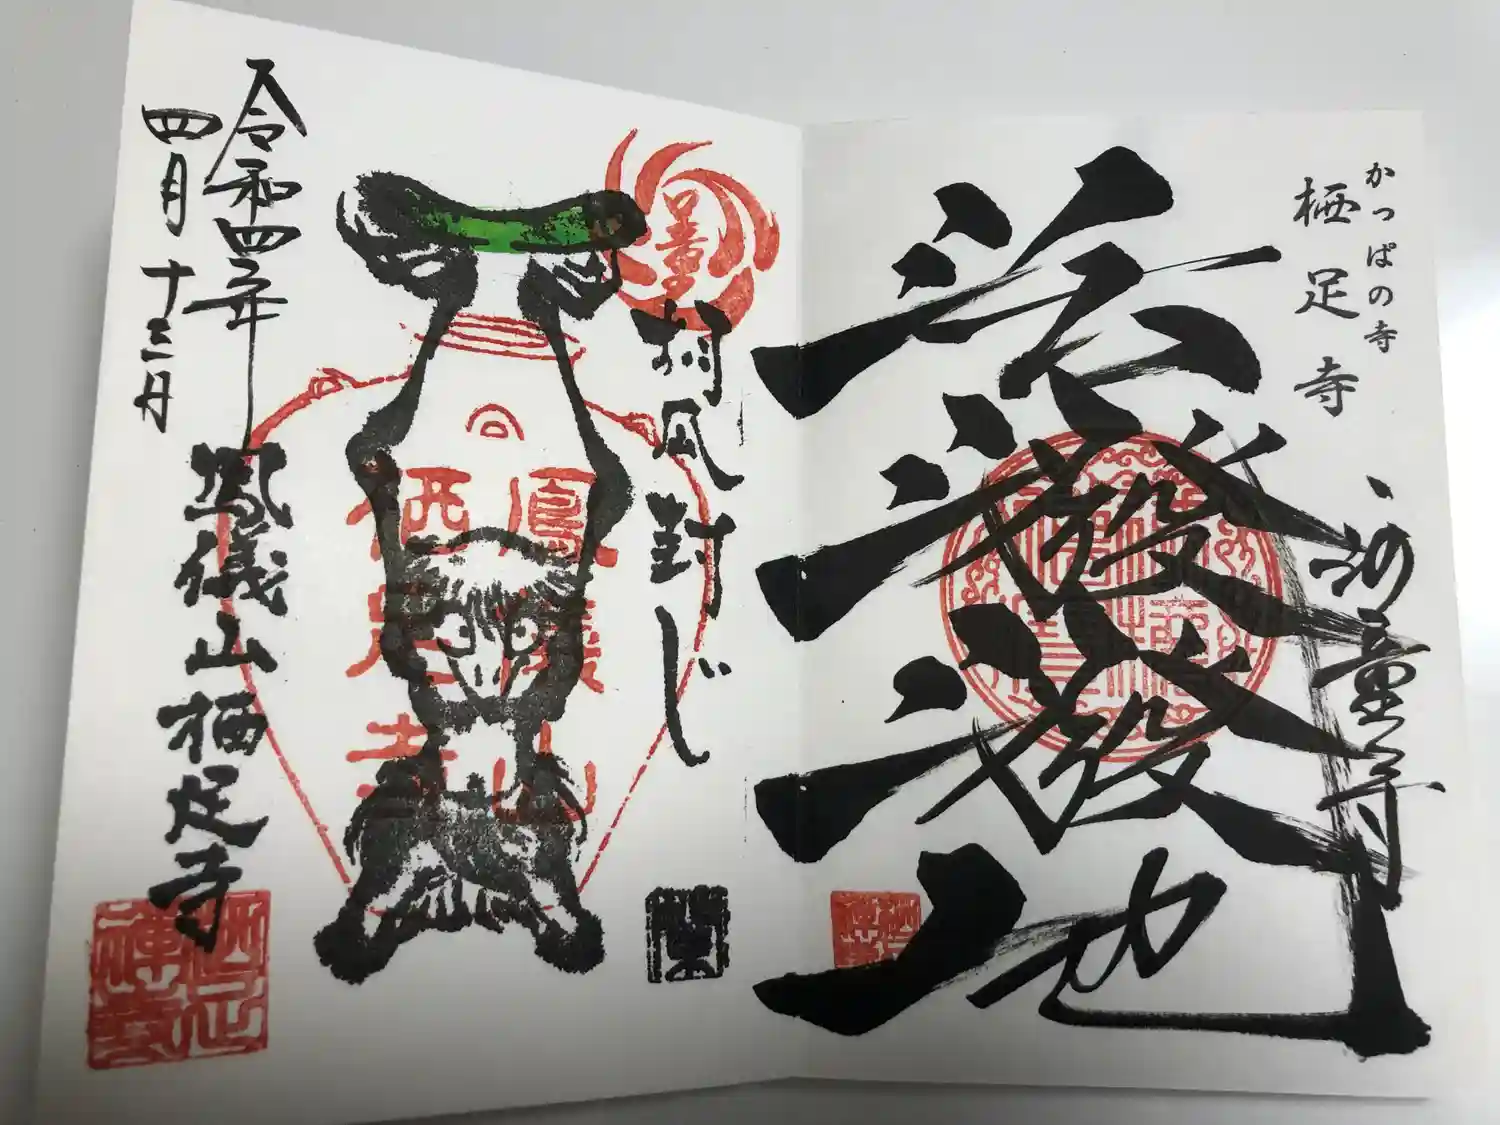 かっぱの寺
栖足寺
河童寺
活潑潑地
封じ
鳳儀山
栖足寺
令和四年
四月十三日
鳳儀山栖足寺
栖足
禅寺